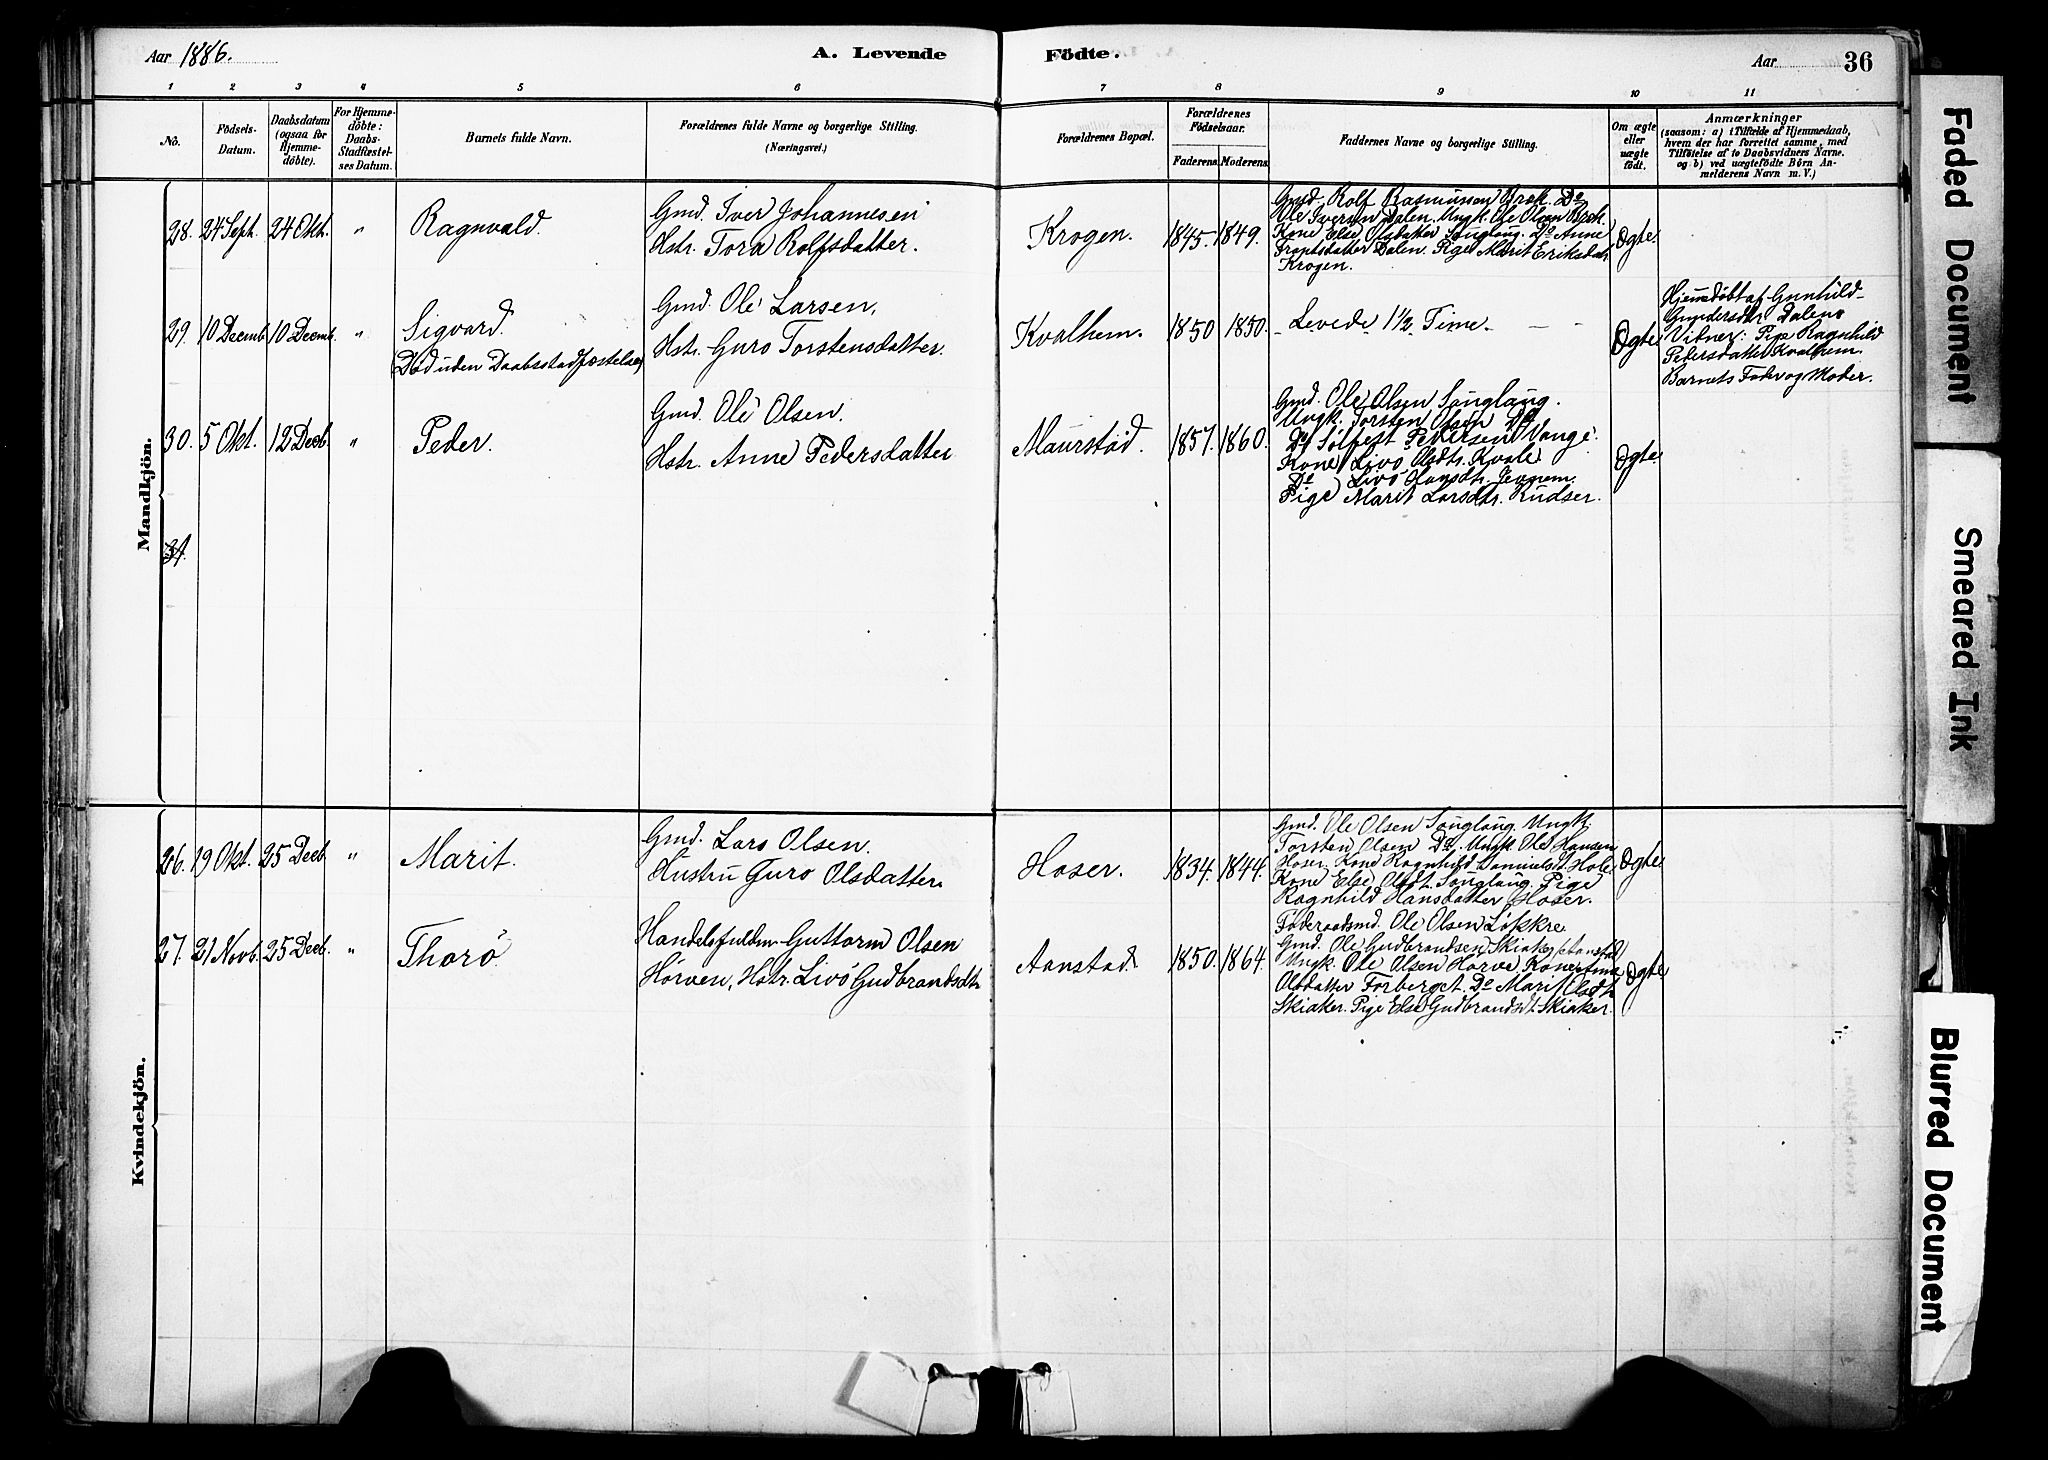 Aar 1886.
A. Levende
Födte.
Aar
36
1 2 3 4 5 6 7 8 9 10 11
No.
Födsels-
Datum.
Daabsdatum
(ogsaa for
Hjemme-
döbte).
For Hjemme-
döbte:
Daabs-
Stadfæstel-
ses Datum.
Barnets fulde Navn.
Forældrenes fulde Navne og borgerlige Stilling.
(Næringsvei.)
Forældrenes Bopæl.
Forældrenes
Födselsaar.
Faderens. Moderens.
Faddernes Navne og borgerlige Stilling.
Om ægte
eller
uægte
födt.
Anmærkninger
(saasom: a) i Tilfælde af Hjemmedaab,
hvem der har forrettet samme, med
Tilföielse af to Daabsvidners Navne.
og b) ved uægtefödte Börn An-
melderens Navn m. V.)
Mandkjön.
28. 24 Sept. 24 Okt. "
Ragnvald.
Gmd. Iver Johannesen
Hstr. Tora Rolfsdatter.
Krogen.
1845. 1849.
Gmd. Rolf Rasmussen Brok. Do
Ole Iversen Dalen. Ungk. Ole Olsen Brok.
Kone Else Olsdatter Songlaug. Do Anne
Dalen. Pige Marit Eriksdatr
Krogen.
Ægte.
29. 10 Decmb. 10 Decmb. "
Sigvard.
(Død uden Daabsstadfæstelse)
Gmd. Ole Larsen.
Hstr. Guro Torstensdatter.
Kvalhem.
1850 1850.
- Levede 1 1/2 Time. - - -
Ægte
Hjemdøbt af Gunhild
Gundersdtr Dalen.
Vidner: Pige Ragnhild
Pedersdatter Kvalhem.
Barnets Fader og Moder.
30. 5 Okt. 12 Decb. "
Peder.
Gmd. Ole Olsen.
Hstr. Anne Pedersdatter
Maurstød.
1857. 1860.
Gmd. Ole Olsen Songlaug.
Ungk. Torsten Olsen Do
Do Sølfest Pedersen Vange.
Kone Livo Olsdtr. Kvale
Do Livo Hansdtr.
Pige Marit Larsdtr. Rudser.
Ægte.
31.
Kvindekjön.
26. 19 Okt. 25 Decb. "
Marit.
Gmd. Lars Olsen.
Hustru Guro Olsdatter.
Hoser.
1834. 1844.
Gmd. Ole Olsen Songlaug. Ungk.
Torsten Olsen Do. Ungk. Ole Hansen
Hoser. Kone Ragnhild Danielsdt. Hole
Kone Else Olsdt. Songlaug. Pige
Ragnhild Hansdatter Hoser.
Ægte
27. 21 Novb. 25 Decb. "
Thorø
Handelsfuldm. Guttorm Olsen
Hørven, Hstr. Livo Gudbrandsdtr
Aanstad
1850. 1864.
Føderaadsmd. Ole Olsen Løkkre
Gmd. Ole Gudbrandsen Skiaker
Ungk. Ole Olsen Hørve. Kone
Olsdatter Forberget. Do Marit Olsdt
Skiaker. Pige Else Gudbrandsdt. Skiaker.
Ægte
Faded Document
Smeared Ink
Blurred Document